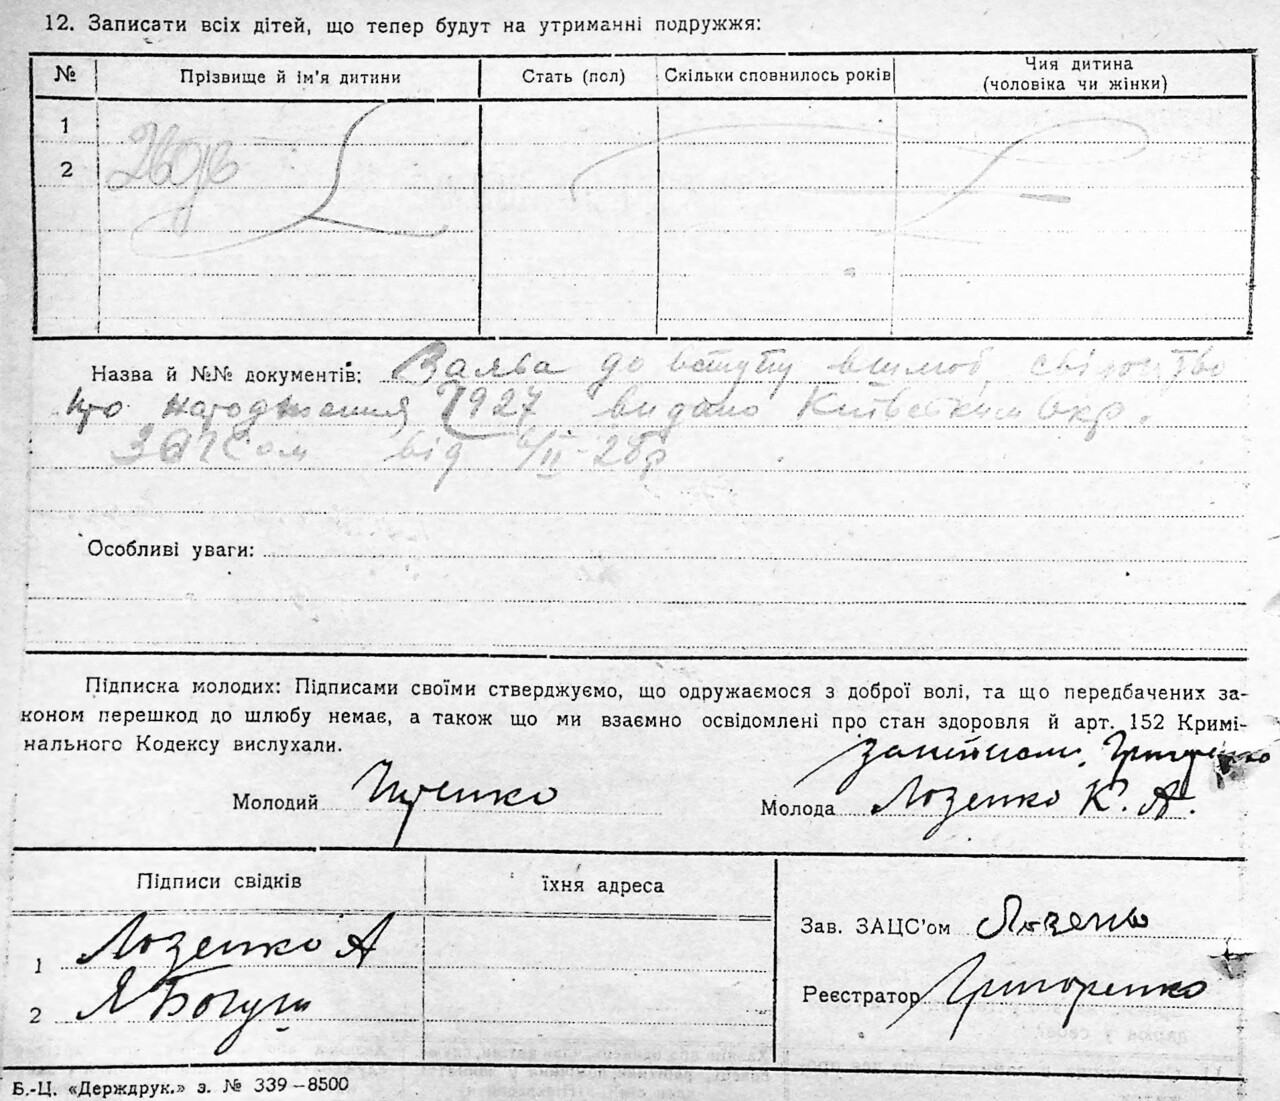 12. Записати всіх дітей, що тепер будут на утриманні подружжя:
№ Прізвище й ім'я дитини Стать (пол) Скільки сповнилось років Чия дитина (чоловіка чи жінки)
1
2
Назва й №№ документів: Заява до вступу в шлюб, свідоцтво
про народження 1927 видано Київським окр.
ЗАГСом від 6/II-28р
Особливі уваги:
Підписка молодих: Підписами своїми стверджуємо, що одружаємося з доброї волі, та що передбачених за-
коном перешкод до шлюбу немає, а також що ми взаємно освідомлені про стан здоровля й арт. 152 Кримі-
нального Кодексу вислухали.
Григоренко
Молодий Молода Лозенко К. А.
Підписи свідків їхня адреса
Зав. ЗАЦС'ом Лозенко
1 Лозенко А
Реєстратор Григоренко
2 Я Богуш
Б.-Ц. «Держдрук.» з. № 339–8500